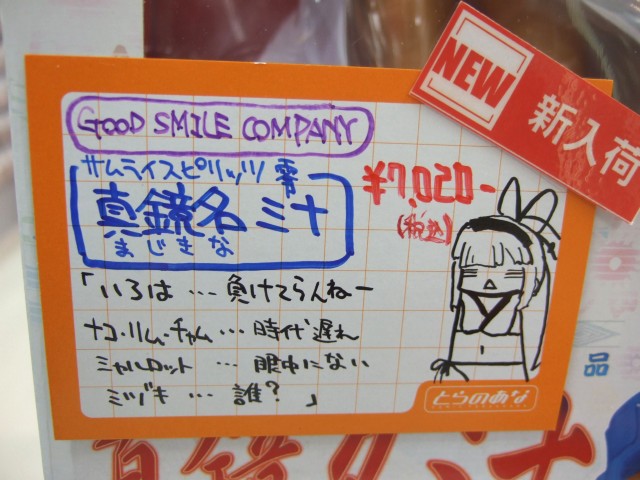 NEW
新入荷
GOOD SMILE COMPANY
サムライスピリッツ 零
真鏡名 ミナ
まじきな
¥7,020-
(税込)
「いろは … 負けてらんねー
ナコ・リム・チャム … 時代遅れ
シャルロット … 眼中にない
ミヅキ … 誰? 」
とらのあな
品